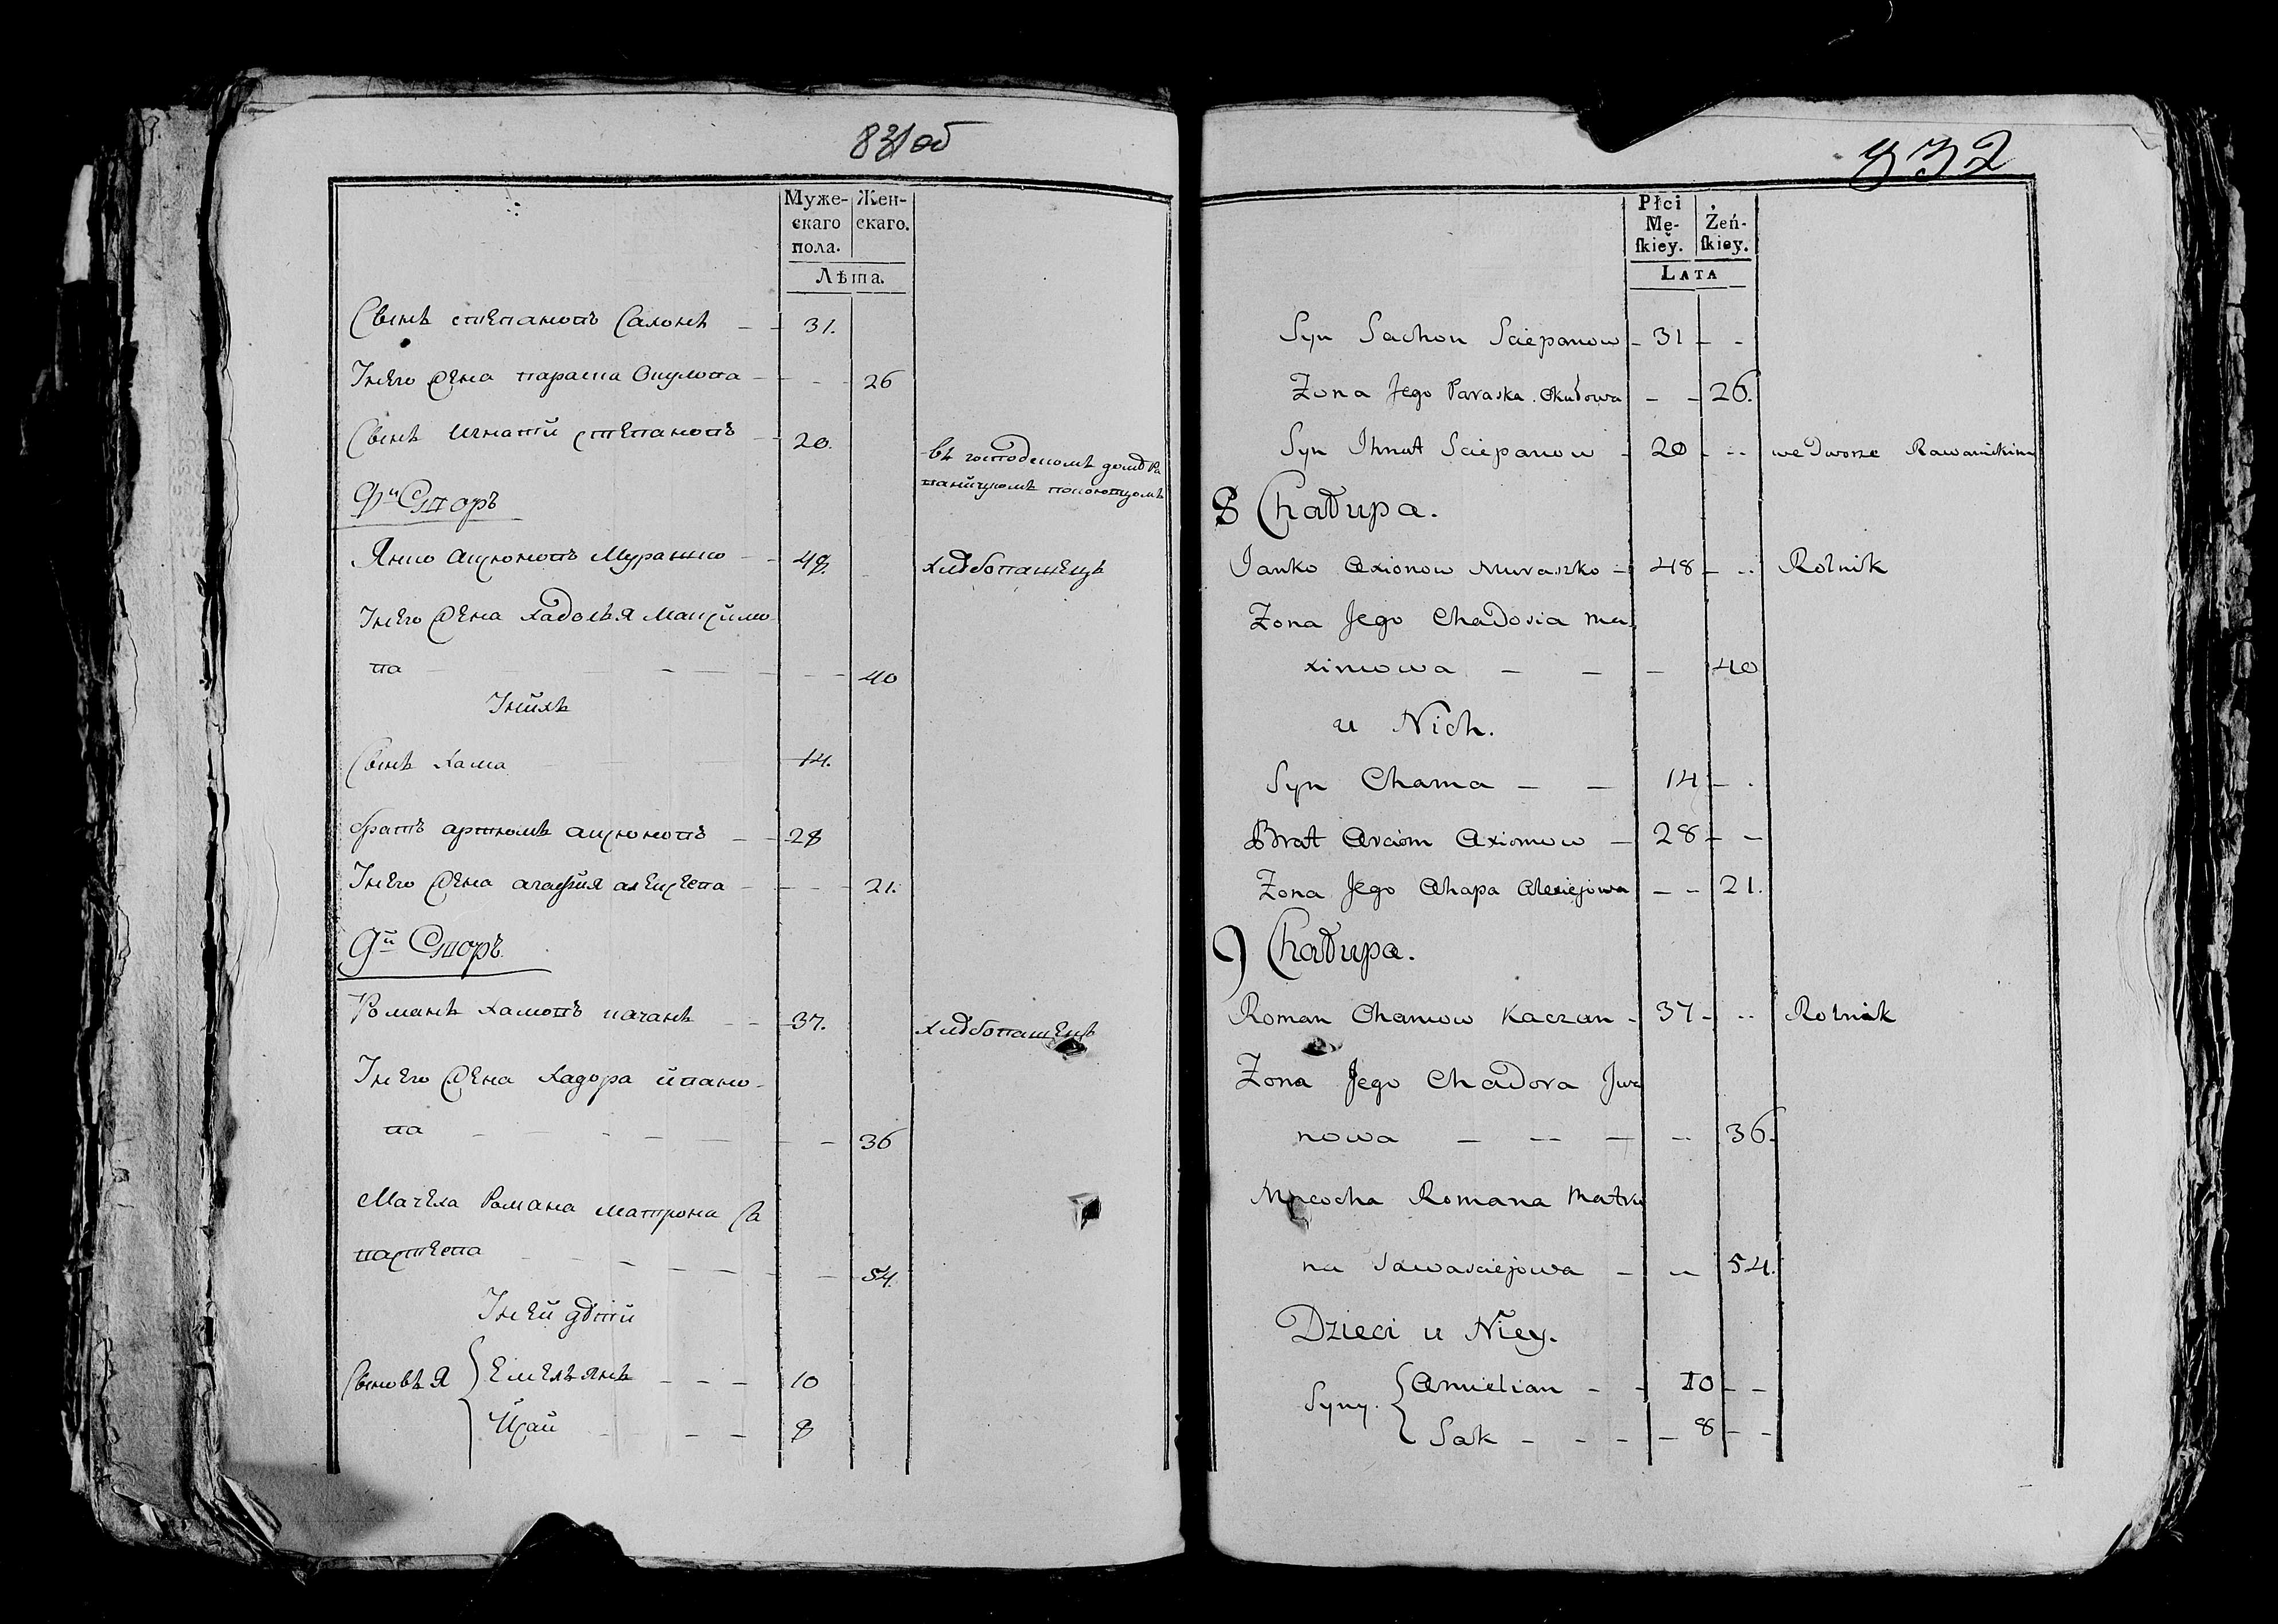 831об
Муже-
скаго
пола.
Жен-
скаго.
Лѣта.
Сынъ степановъ Сахонъ - - 31.
Унего жена параска Окулова - - - 26
Сынъ Игнатъ степановъ - 20.
въ господскомъ домѣ Ра
8й Сторъ
Янко аксюновъ Мурашко - - 48. хлѣбопашецъ
Унего жена хадосья Максимо
ва - - - - - 40
Унихъ
Сынъ хама 14.
братъ артюмъ аксюновъ - - 28
Унего жена агафия алексеева - - - 21.
9й Сторъ
Романъ хамовъ качанъ - - 37. хлѣбопашецъ
Унего жена хадора ивано-
ва - - - - - - 36
Мачеха Романа матрона Са
вастеева - - - - - - 54.
Уней дѣти
Сыновья Емельянъ - - - 10
Исай - - - 8
832
Płci
Mę-
skiey.
Żeń-
skiey.
LATA
Syn Sachon Sciepanow - 31 - -
Zona Jego Paraska Okułowa - - 26.
Syn Ihnat Sciepanow - 20 - -- we Dworze Rawanickim
8 Chałupa.
Janko Axionow Muraszko - 48 - -- Rolnik
Zona Jego Chadosia Ma
ximowa - - - 40
u Nich.
Syn Chama - - 14 - -
Brat Arciom Axionow - 28 - -
Zona Jego Ahapa Alexiejowa - - 21.
9 Chałupa.
Roman Chamow Kaczan - 37 - -- Rolnik
Zona Jego Chadora Jwa
nowa - -- - -- 36.
Macocha Romana Matro
na Sawasciejowa - -- 54.
Dzieci u Niey.
Syny. Amielian - - 10 - -
Sak - - - - 8 - -